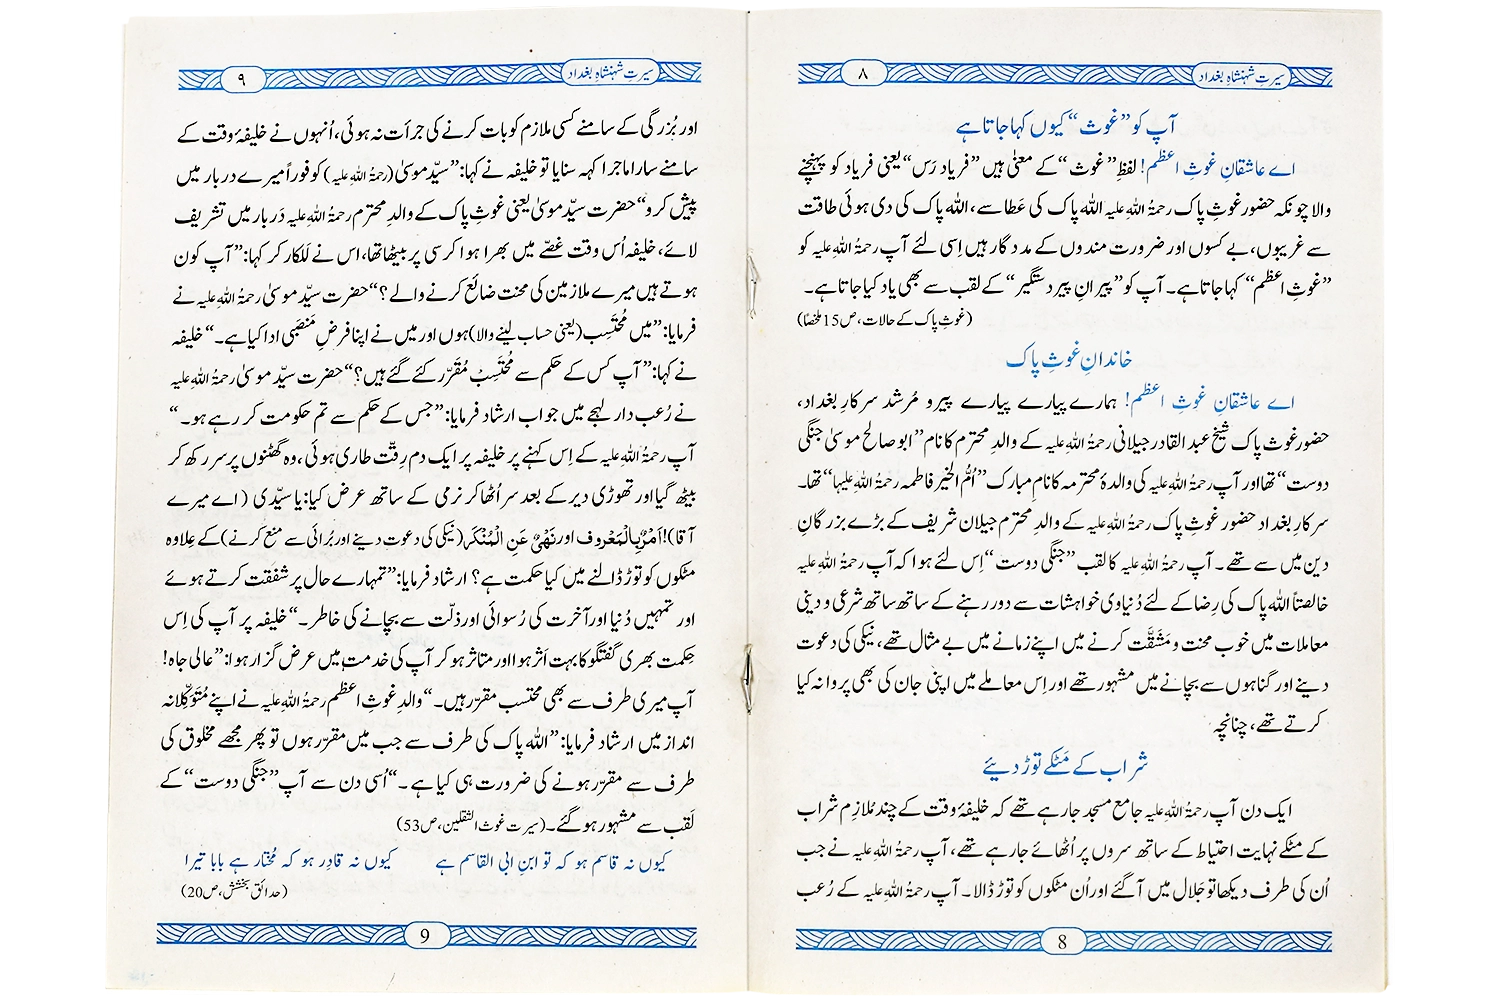 سیرتِ شہنشاہِ بغداد
٨
آپ کو ”غوث“ کیوں کہا جاتا ہے
اے عاشقانِ غوثِ اعظم! لفظِ ”غوث“ کے معنٰی ہیں ”فریاد رَس“ یعنی فریاد کو پہنچنے
والا چونکہ حضور غوثِ پاک رحمۃُ اللہِ علیہ اللہ پاک کی عَطا سے، اللہ پاک کی دی ہوئی طاقت
سے غریبوں، بے کسوں اور ضرورت مندوں کے مددگار ہیں اِسی لئے آپ رحمۃُ اللہِ علیہ کو
”غوثِ اعظم“ کہا جاتا ہے۔ آپ کو ”پیرانِ پیر دستگیر“ کے لقب سے بھی یاد کیا جاتا ہے۔
(غوثِ پاک کے حالات، ص15 ملخصاً)
خاندانِ غوثِ پاک
اے عاشقانِ غوثِ اعظم! ہمارے پیارے پیارے پیر و مُرشد سرکارِ بغداد،
حضور غوثِ پاک شیخ عبد القادر جیلانی رحمۃُ اللہِ علیہ کے والدِ محترم کا نام ”ابو صالح موسیٰ جنگی
دوست“ تھا اور آپ رحمۃُ اللہِ علیہ کی والدۂ محترمہ کا نامِ مبارک ”اُمُّ الخیر فاطمہ رحمۃُ اللہِ علیہا“ تھا۔
سرکارِ بغداد حضور غوثِ پاک رحمۃُ اللہِ علیہ کے والدِ محترم جیلان شریف کے بڑے بزرگانِ
دین میں سے تھے۔ آپ رحمۃُ اللہِ علیہ کا لقب ”جنگی دوست“ اِس لئے ہوا کہ آپ رحمۃُ اللہِ علیہ
خالصتاً اللہ پاک کی رِضا کے لئے دُنیاوی خواہشات سے دور رہنے کے ساتھ ساتھ شرعی و دینی
معاملات میں خوب محنت و مَشَقَّت کرنے میں اپنے زمانے میں بے مثال تھے، نیکی کی دعوت
دینے اور گناہوں سے بچانے میں مشہور تھے اور اِس معاملے میں اپنی جان کی بھی پروا نہ کیا
کرتے تھے، چنانچہ
شراب کے مَٹکے توڑ دیئے
ایک دن آپ رحمۃُ اللہِ علیہ جامع مسجد جا رہے تھے کہ خلیفۂ وقت کے چند مُلازِم شراب
کے مٹکے نہایت احتیاط کے ساتھ سروں پر اُٹھائے جا رہے تھے، آپ رحمۃُ اللہِ علیہ نے جب
اُن کی طرف دیکھا تو جَلال میں آ گئے اور اُن مٹکوں کو توڑ ڈالا۔ آپ رحمۃُ اللہِ علیہ کے رُعب
8
سیرتِ شہنشاہِ بغداد
٩
اور بُزرگی کے سامنے کسی ملازم کو بات کرنے کی جرأت نہ ہوئی، اُنہوں نے خلیفۂ وقت کے
سامنے سارا ماجرا کہہ سنایا تو خلیفہ نے کہا: ”سیّد موسیٰ (رحمۃُ اللہِ علیہ) کو فوراً میرے دربار میں
پیش کرو“ حضرت سیّد موسیٰ یعنی غوثِ پاک کے والدِ محترم رحمۃُ اللہِ علیہ دَربار میں تشریف
لائے، خلیفہ اُس وقت غصّے میں بھرا ہوا کرسی پر بیٹھا تھا، اس نے للکار کر کہا: ”آپ کون
ہوتے ہیں میرے ملازمین کی محنت ضائع کرنے والے؟“ حضرت سیّد موسیٰ رحمۃُ اللہِ علیہ نے
فرمایا: ”میں مُحتَسِب (یعنی حساب لینے والا) ہوں اور میں نے اپنا فرضِ مَنصَبی ادا کیا ہے۔“ خلیفہ
نے کہا: ”آپ کس کے حکم سے مُحتَسِب مُقرّر کئے گئے ہیں؟“ حضرت سیّد موسیٰ رحمۃُ اللہِ علیہ
نے رُعب دار لہجے میں جواب ارشاد فرمایا: ”جس کے حکم سے تم حکومت کر رہے ہو۔“
آپ رحمۃُ اللہِ علیہ کے اِس کہنے پر خلیفہ پر ایک دم رِقّت طاری ہوئی، وہ گھٹنوں پر سر رکھ کر
بیٹھ گیا اور تھوڑی دیر کے بعد سر اُٹھا کر نرمی کے ساتھ عرض کیا: یا سیّدی (اے میرے
آقا)! اَمْرٌ بِالْمَعْروف اور نَهْیٌ عَنِ الْمُنْکَر (نیکی کی دعوت دینے اور بُرائی سے منع کرنے) کے عِلاوہ
مٹکوں کو توڑ ڈالنے میں کیا حکمت ہے؟ ارشاد فرمایا: ”تمہارے حال پر شفقت کرتے ہوئے
اور تمہیں دُنیا اور آخرت کی رُسوائی اور ذلّت سے بچانے کی خاطر۔“ خلیفہ پر آپ کی اِس
حِکمت بھری گفتگو کا بہت اَثر ہوا اور متاثر ہو کر آپ کی خدمت میں عرض گزار ہوا: ”عالی جاہ!
آپ میری طرف سے بھی محتسب مقرّر ہیں۔“ والدِ غوثِ اعظم رحمۃُ اللہِ علیہ نے اپنے مُتَوَکِّلانہ
انداز میں ارشاد فرمایا: ”اللہ پاک کی طرف سے جب میں مقرّر ہوں تو پھر مجھے مخلوق کی
طرف سے مقرّر ہونے کی ضرورت ہی کیا ہے۔“ اُسی دن سے آپ ”جنگی دوست“ کے
لَقب سے مشہور ہو گئے۔ (سیرت غوث الثقلین، ص53)
کیوں نہ قاسم ہو کہ تو ابنِ ابی القاسم ہے کیوں نہ قادِر ہو کہ مُختار ہے بابا تیرا
(حدائقِ بخشش، ص20)
9